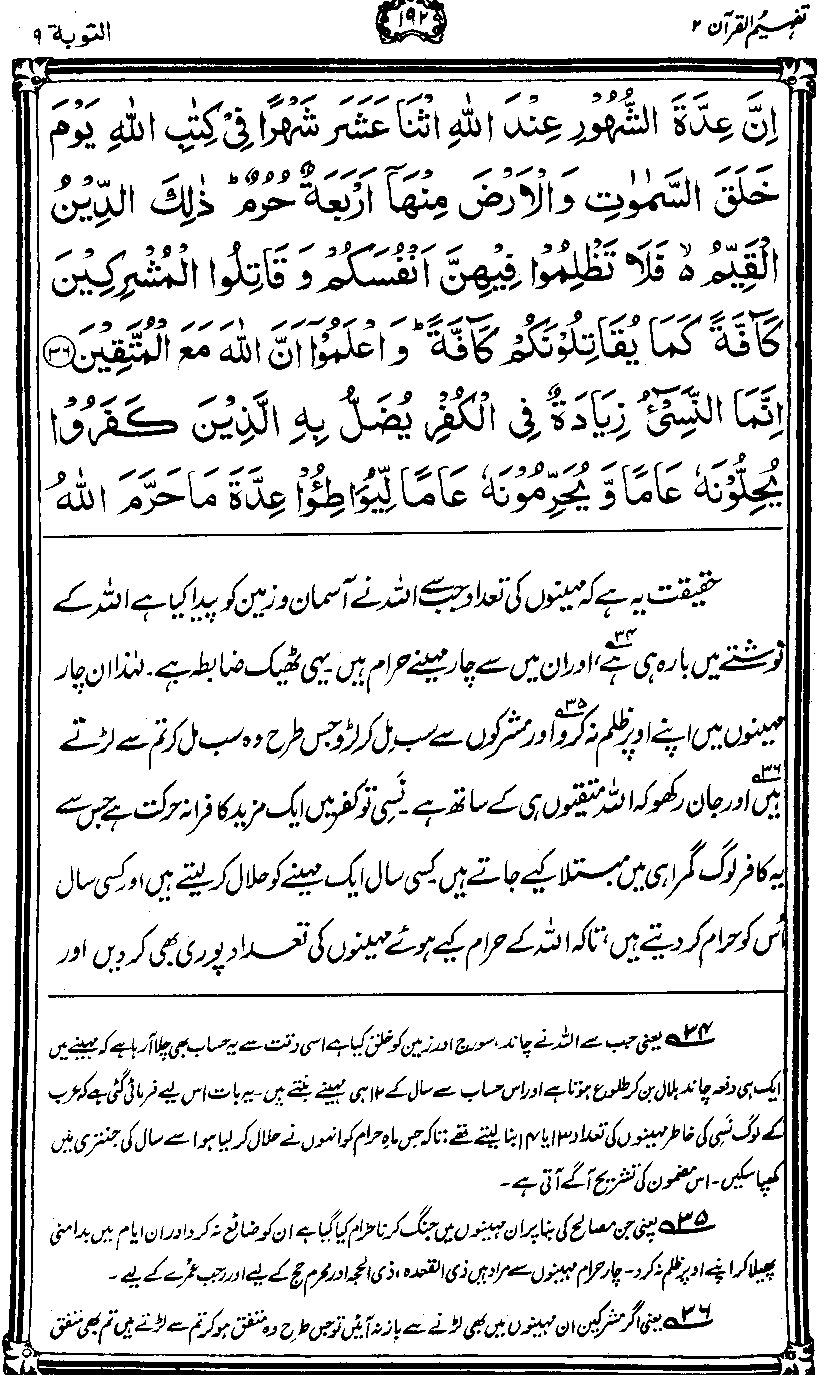 تفہیم القرآن ۲
۱۹۲
التوبة ۹
اِنَّ عِدَّةَ الشُّهُوْرِ عِنْدَ اللّٰهِ اثْنَا عَشَرَ شَهْرًا فِيْ كِتٰبِ اللّٰهِ يَوْمَ
خَلَقَ السَّمٰوٰتِ وَالْاَرْضَ مِنْهَآ اَرْبَعَةٌ حُرُمٌ ؕ ذٰلِكَ الدِّيْنُ
الْقَيِّمُ ۙ فَلَا تَظْلِمُوْا فِيْهِنَّ اَنْفُسَكُمْ وَ قَاتِلُوا الْمُشْرِكِيْنَ
كَآفَّةً كَمَا يُقَاتِلُوْنَكُمْ كَآفَّةً ؕ وَ اعْلَمُوْۤا اَنَّ اللّٰهَ مَعَ الْمُتَّقِيْنَ ۳۶
اِنَّمَا النَّسِيْٓءُ زِيَادَةٌ فِي الْكُفْرِ يُضَلُّ بِهِ الَّذِيْنَ كَفَرُوْا
يُحِلُّوْنَهٗ عَامًا وَّ يُحَرِّمُوْنَهٗ عَامًا لِّيُوَاطِـُٔوْا عِدَّةَ مَا حَرَّمَ اللّٰهُ
حقیقت یہ ہے کہ مہینوں کی تعداد جب سے اللہ نے آسمان و زمین کو پیدا کیا ہے اللہ کے
نوشتے میں بارہ ہی ہے،۳۴ اور ان میں سے چار مہینے حرام ہیں۔ یہی ٹھیک ضابطہ ہے۔ لہٰذا ان چار
مہینوں میں اپنے اوپر ظلم نہ کرو۳۵ اور مشرکوں سے سب مل کر لڑو جس طرح وہ سب مل کر تم سے لڑتے
ہیں۳۶ اور جان رکھو کہ اللہ متقیوں ہی کے ساتھ ہے۔ نَسِی تو کفر میں ایک مزید کافرانہ حرکت ہے جس سے
یہ کافر لوگ گمراہی میں مبتلا کیے جاتے ہیں۔ کسی سال ایک مہینے کو حلال کر لیتے ہیں اور کسی سال
اُس کو حرام کر دیتے ہیں، تاکہ اللہ کے حرام کیے ہوئے مہینوں کی تعداد پوری بھی کر دیں اور
۳۴ یعنی جب سے اللہ نے چاند، سورج اور زمین کو خلق کیا ہے اسی وقت سے یہ حساب بھی چلا آ رہا ہے کہ مہینے میں
ایک ہی دفعہ چاند ہلال بن کر طلوع ہوتا ہے اور اس حساب سے سال کے ۱۲ ہی مہینے بنتے ہیں۔ یہ بات اس لیے فرمائی گئی ہے کہ عرب
کے لوگ نَسِی کی خاطر مہینوں کی تعداد ۱۳ یا ۱۴ بنا لیتے تھے، تاکہ جس ماہِ حرام کو انہوں نے حلال کر لیا ہو اسے سال کی جنتری میں
کھپا سکیں۔ اس مضمون کی تشریح آگے آتی ہے۔
۳۵ یعنی جن مصالح کی بنا پر ان مہینوں میں جنگ کرنا حرام کیا گیا ہے ان کو ضائع نہ کرو اور ان ایام میں بدامنی
پھیلا کر اپنے اوپر ظلم نہ کرو۔ چار حرام مہینوں سے مراد ہیں ذی القعدہ، ذی الحجہ اور محرم حج کے لیے اور رجب عمرے کے لیے۔
۳۶ یعنی اگر مشرکین ان مہینوں میں بھی لڑنے سے باز نہ آئیں تو جس طرح وہ متفق ہو کر تم سے لڑتے ہیں تم بھی متفق